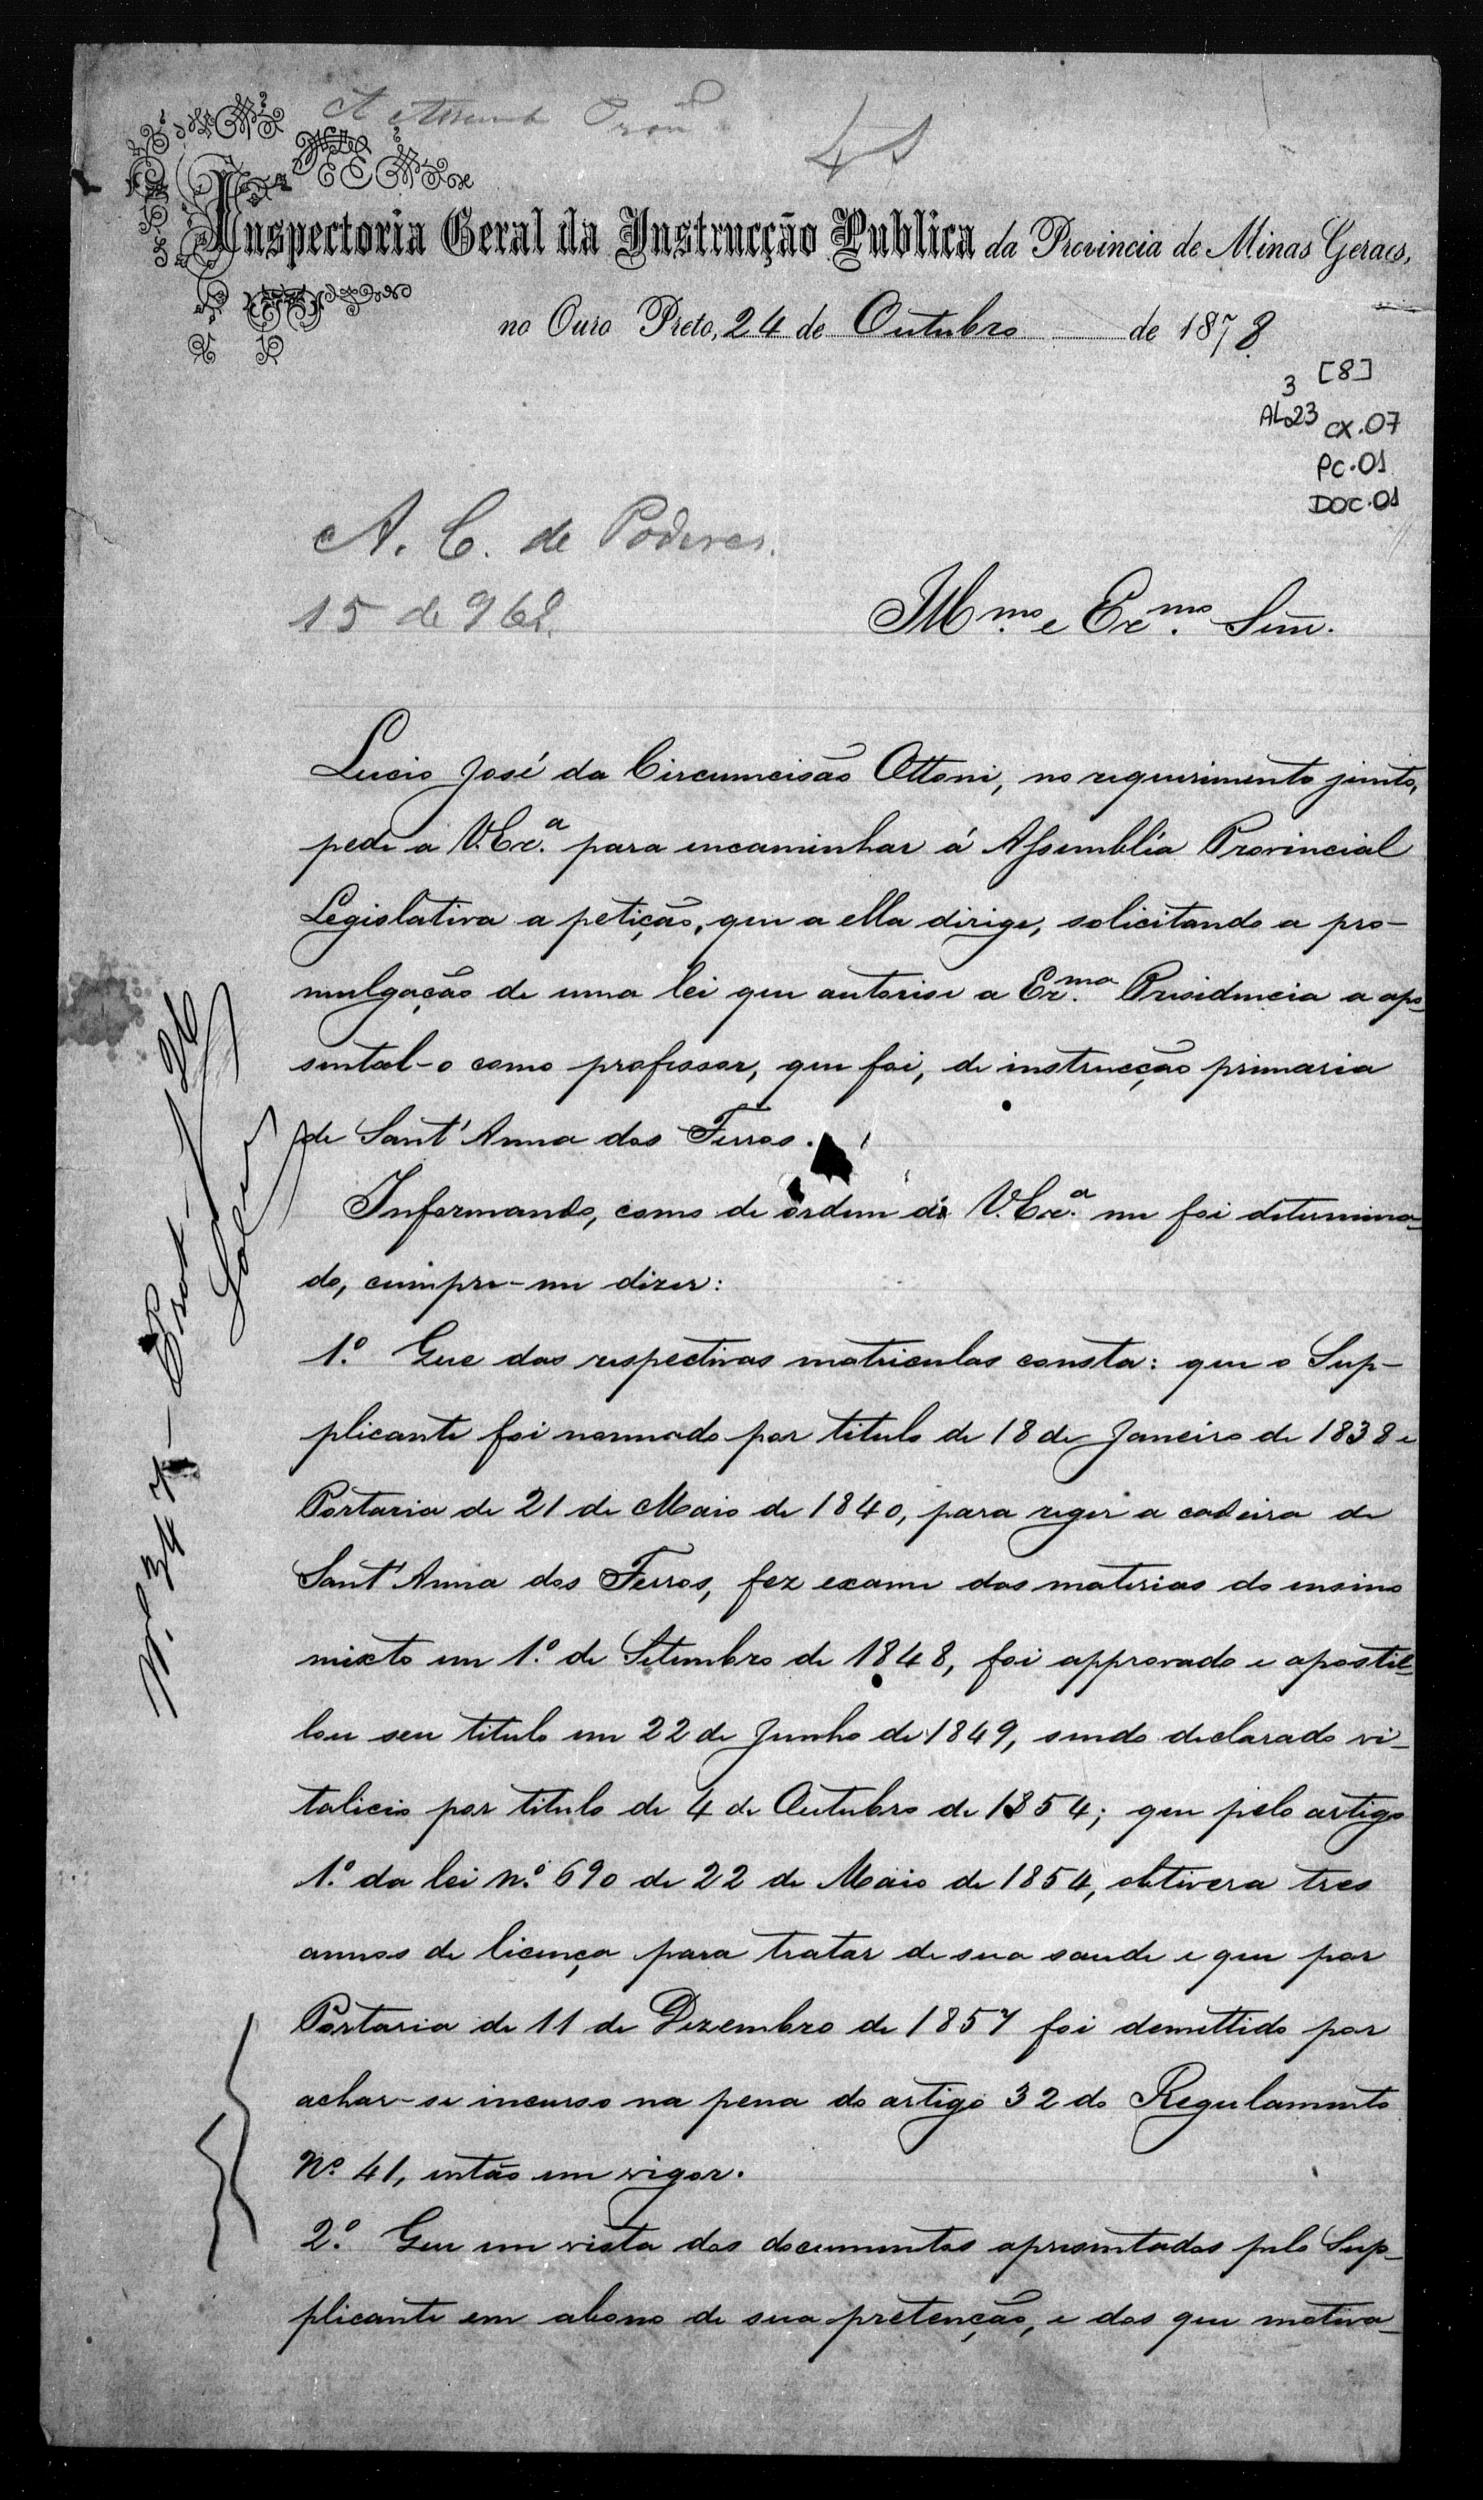 A Assemb Prov
Inspectoria Geral da Instrucção Publica da Provincia de Minas Geraes,
no Ouro Preto, 24 de Outubro de 1878
[8]
3
AL23 CX.07
PC.01
DOC.01
A. C. de Poderes.
15 de 9
Illmo. e Exmo. Senr.
Lucio José da Circumcisão Ottoni, no requerimento junto,
pede a V.Exa. para encaminhar á Assembléa Provincial
Legislativa a petição, que a ella dirige, solicitando a pro-
mulgação de uma lei que autorise a Exma. Presidencia a apo-
sental-o como professor, que foi, de instrucção primaria
de Sant'Anna dos Ferros.
Informando, como de ordem de V.Exa. me foi determina-
do, cumpre-me dizer:
1º. Que das respectivas matriculas consta: que o Sup-
plicante foi nomeado por titulo de 18 de Janeiro de 1838 e
Portaria de 21 de Maio de 1840, para reger a cadeira de
Sant'Anna dos Ferros, fez exame das materias do ensino
mixto em 1º. de Setembro de 1848, foi approvado e apostil-
lou seu titulo em 22 de Junho de 1849, sendo declarado vi-
talicio por titulo de 4 de Outubro de 1854; que pelo artigo
1º. da lei nº. 690 de 22 de Maio de 1854, obtivera tres
annos de licença para tratar de sua saude e que por
Portaria de 11 de Dezembro de 1857 foi demettido por
achar-se incurso na pena do artigo 32 do Regulamento
Nº. 41, então em vigor.
2º. Que em vista dos documentos apresentados pelo Sup-
plicante em abono de sua pretenção, e dos que motiva-